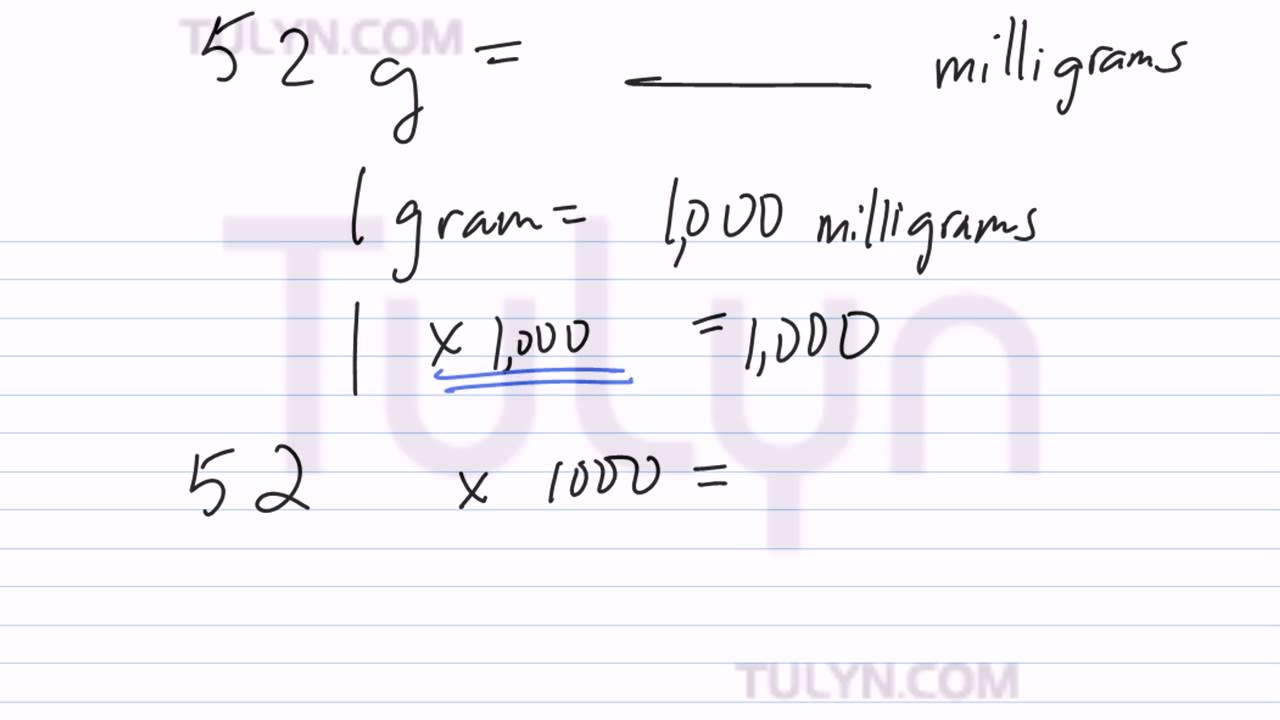 TULYN.COM
52 g = ______ milligrams
1 gram = 1,000 milligrams
1 x 1,000 = 1,000
Tulyn
52 x 1000 =
TULYN.COM